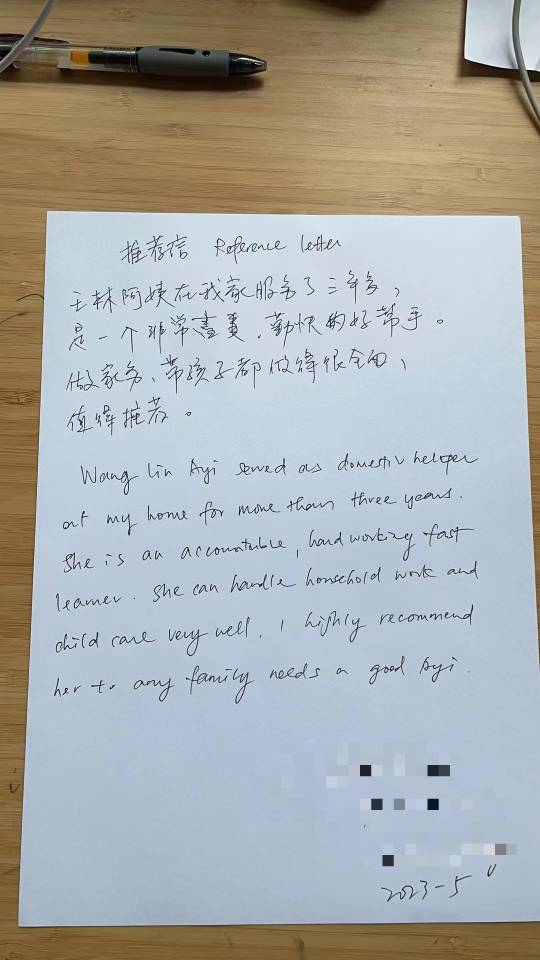 推荐信 Reference letter
王林阿姨在我家服务了三年多，
是一个非常尽责、勤快的好帮手。
做家务、带孩子都做得很全面，
值得推荐。
Wang Lin Ayi served as domestic helper
at my home for more than three years.
She is an accountable, hardworking fast
learner. She can handle household work and
child care very well. I highly recommend
her to any family needs a good Ayi.
2023-5